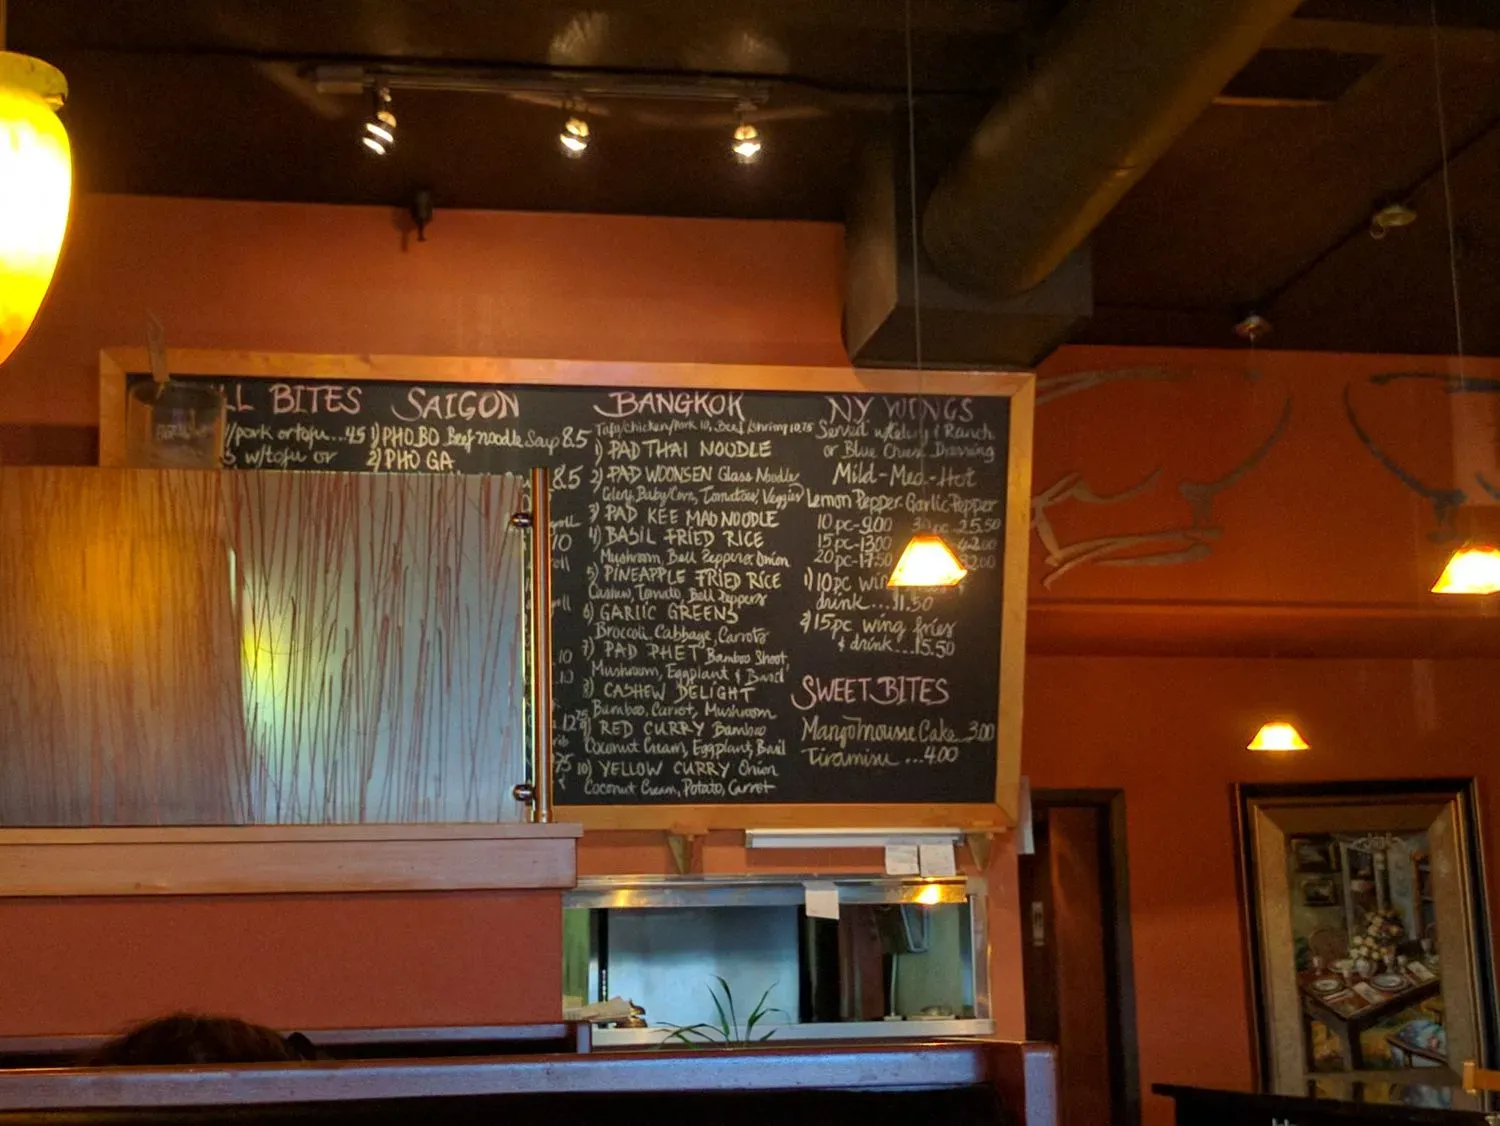 LL BITES
/pork or tofu...4.5
w/tofu or
SAIGON
1) PHO BO Beef noodle Soup 8.5
2) PHO GA
8.5
BANGKOK
Tofu/chicken/Pork 10, Beef/shrimp 10.75
1) PAD THAI NOODLE
2) PAD WOONSEN Glass Noodle
Celery, Baby Corn, Tomatoes, Veggies
3) PAD KEE MAO NOODLE
4) BASIL FRIED RICE
Mushroom, Bell Peppers, Onion
5) PINEAPPLE FRIED RICE
Cashew, Tomato, Bell Peppers
6) GARLIC GREENS
Broccoli, Cabbage, Carrots
7) PAD PHET Bamboo Shoot,
Mushroom, Eggplant & Basil
8) CASHEW DELIGHT
Bamboo, Carrot, Mushroom
9) RED CURRY Bamboo
Coconut Cream, Eggplant, Basil
10) YELLOW CURRY Onion
Coconut Cream, Potato, Carrot
NY WINGS
Served w/Celery & Ranch
or Blue Cheese Dressing
Mild-Med.-Hot
Lemon Pepper-Garlic Pepper
10 pc-9.00 pc-25.50
15 pc-13.00
20 pc-17.50
1) 10 pc wing
drink...11.50
2) 15 pc wing fries
& drink...15.50
SWEET BITES
Mango mousse Cake 3.00
Tiramisu ...4.00